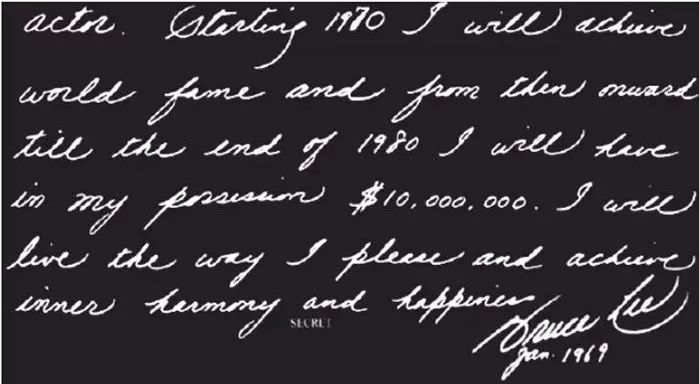 actor. Starting 1970 I will achieve
world fame and from then onward
till the end of 1980 I will have
in my possession $10,000,000. I will
live the way I please and achieve
inner harmony and happiness
SECRET
Bruce Lee
Jan. 1969